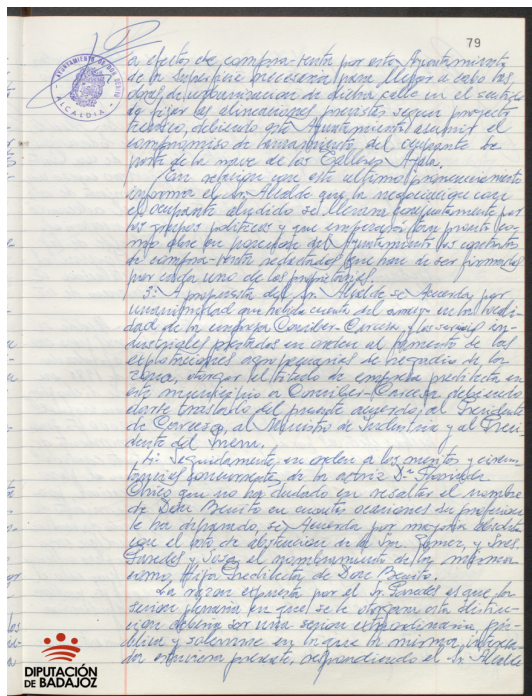 79
AYUNTAMIENTO DE DON BENITO
ALCALDIA
a efectos de compra-venta por este Ayuntamiento
de la superficie necesaria para llevar a cabo las
obras de urbanizacion de dicha calle en el sentido
de fijar las alineaciones previstas segun proyecto
tecnico, debiendo este Ayuntamiento asumir el
compromiso de lanzamiento del ocupante de
parte de la nave de los Talleres Ayala.
Con relacion con este ultimo pronunciamiento
informa el Sr. Alcalde que la negociacion con
el ocupante aludido se llevara conjuntamente por
los grupos politicos y que empezara tan pronto co-
mo obre en posesion del Ayuntamiento los contratos
de compra-venta redactados que han de ser firmados
por cada uno de los propietarios.
3.- A propuesta del Sr. Alcalde, se Acuerda por
unanimidad que habida cuenta del en la locali-
dad de la empresa y los servicios in-
dustriales prestados en orden al fomento de las
explotaciones agropecuarias de regadio de la
zona, otorgar el titulo de empresa predilecta en
este municipio a debiendo
darse traslado del presente acuerdo, al Presidente
de al Ministro de Industria y al Presi
dente del
4.- Seguidamente, en orden a los meritos y circuns
tancias concurrentes de la actriz Dª
Chico que no ha dudado en resaltar el nombre
de Don Benito en cuantas ocasiones su profesion
le ha deparado, se Acuerda por mayoria absoluta
con el voto de abstencion de la Sra. Gomez, y Sres.
Paredes y Sosa, el nombramiento de la misma
como Hija Predilecta de Don Benito.
La razon expuesta por el Sr. Paredes es que la
sesion plenaria en que se le otorgara esta distin-
cion deberia ser una sesion extraordinaria, pú-
blica y solemne en la que la misma interesa-
da estuviera presente, respondiendo el Sr. Alcalde
DIPUTACIÓN
DE BADAJOZ